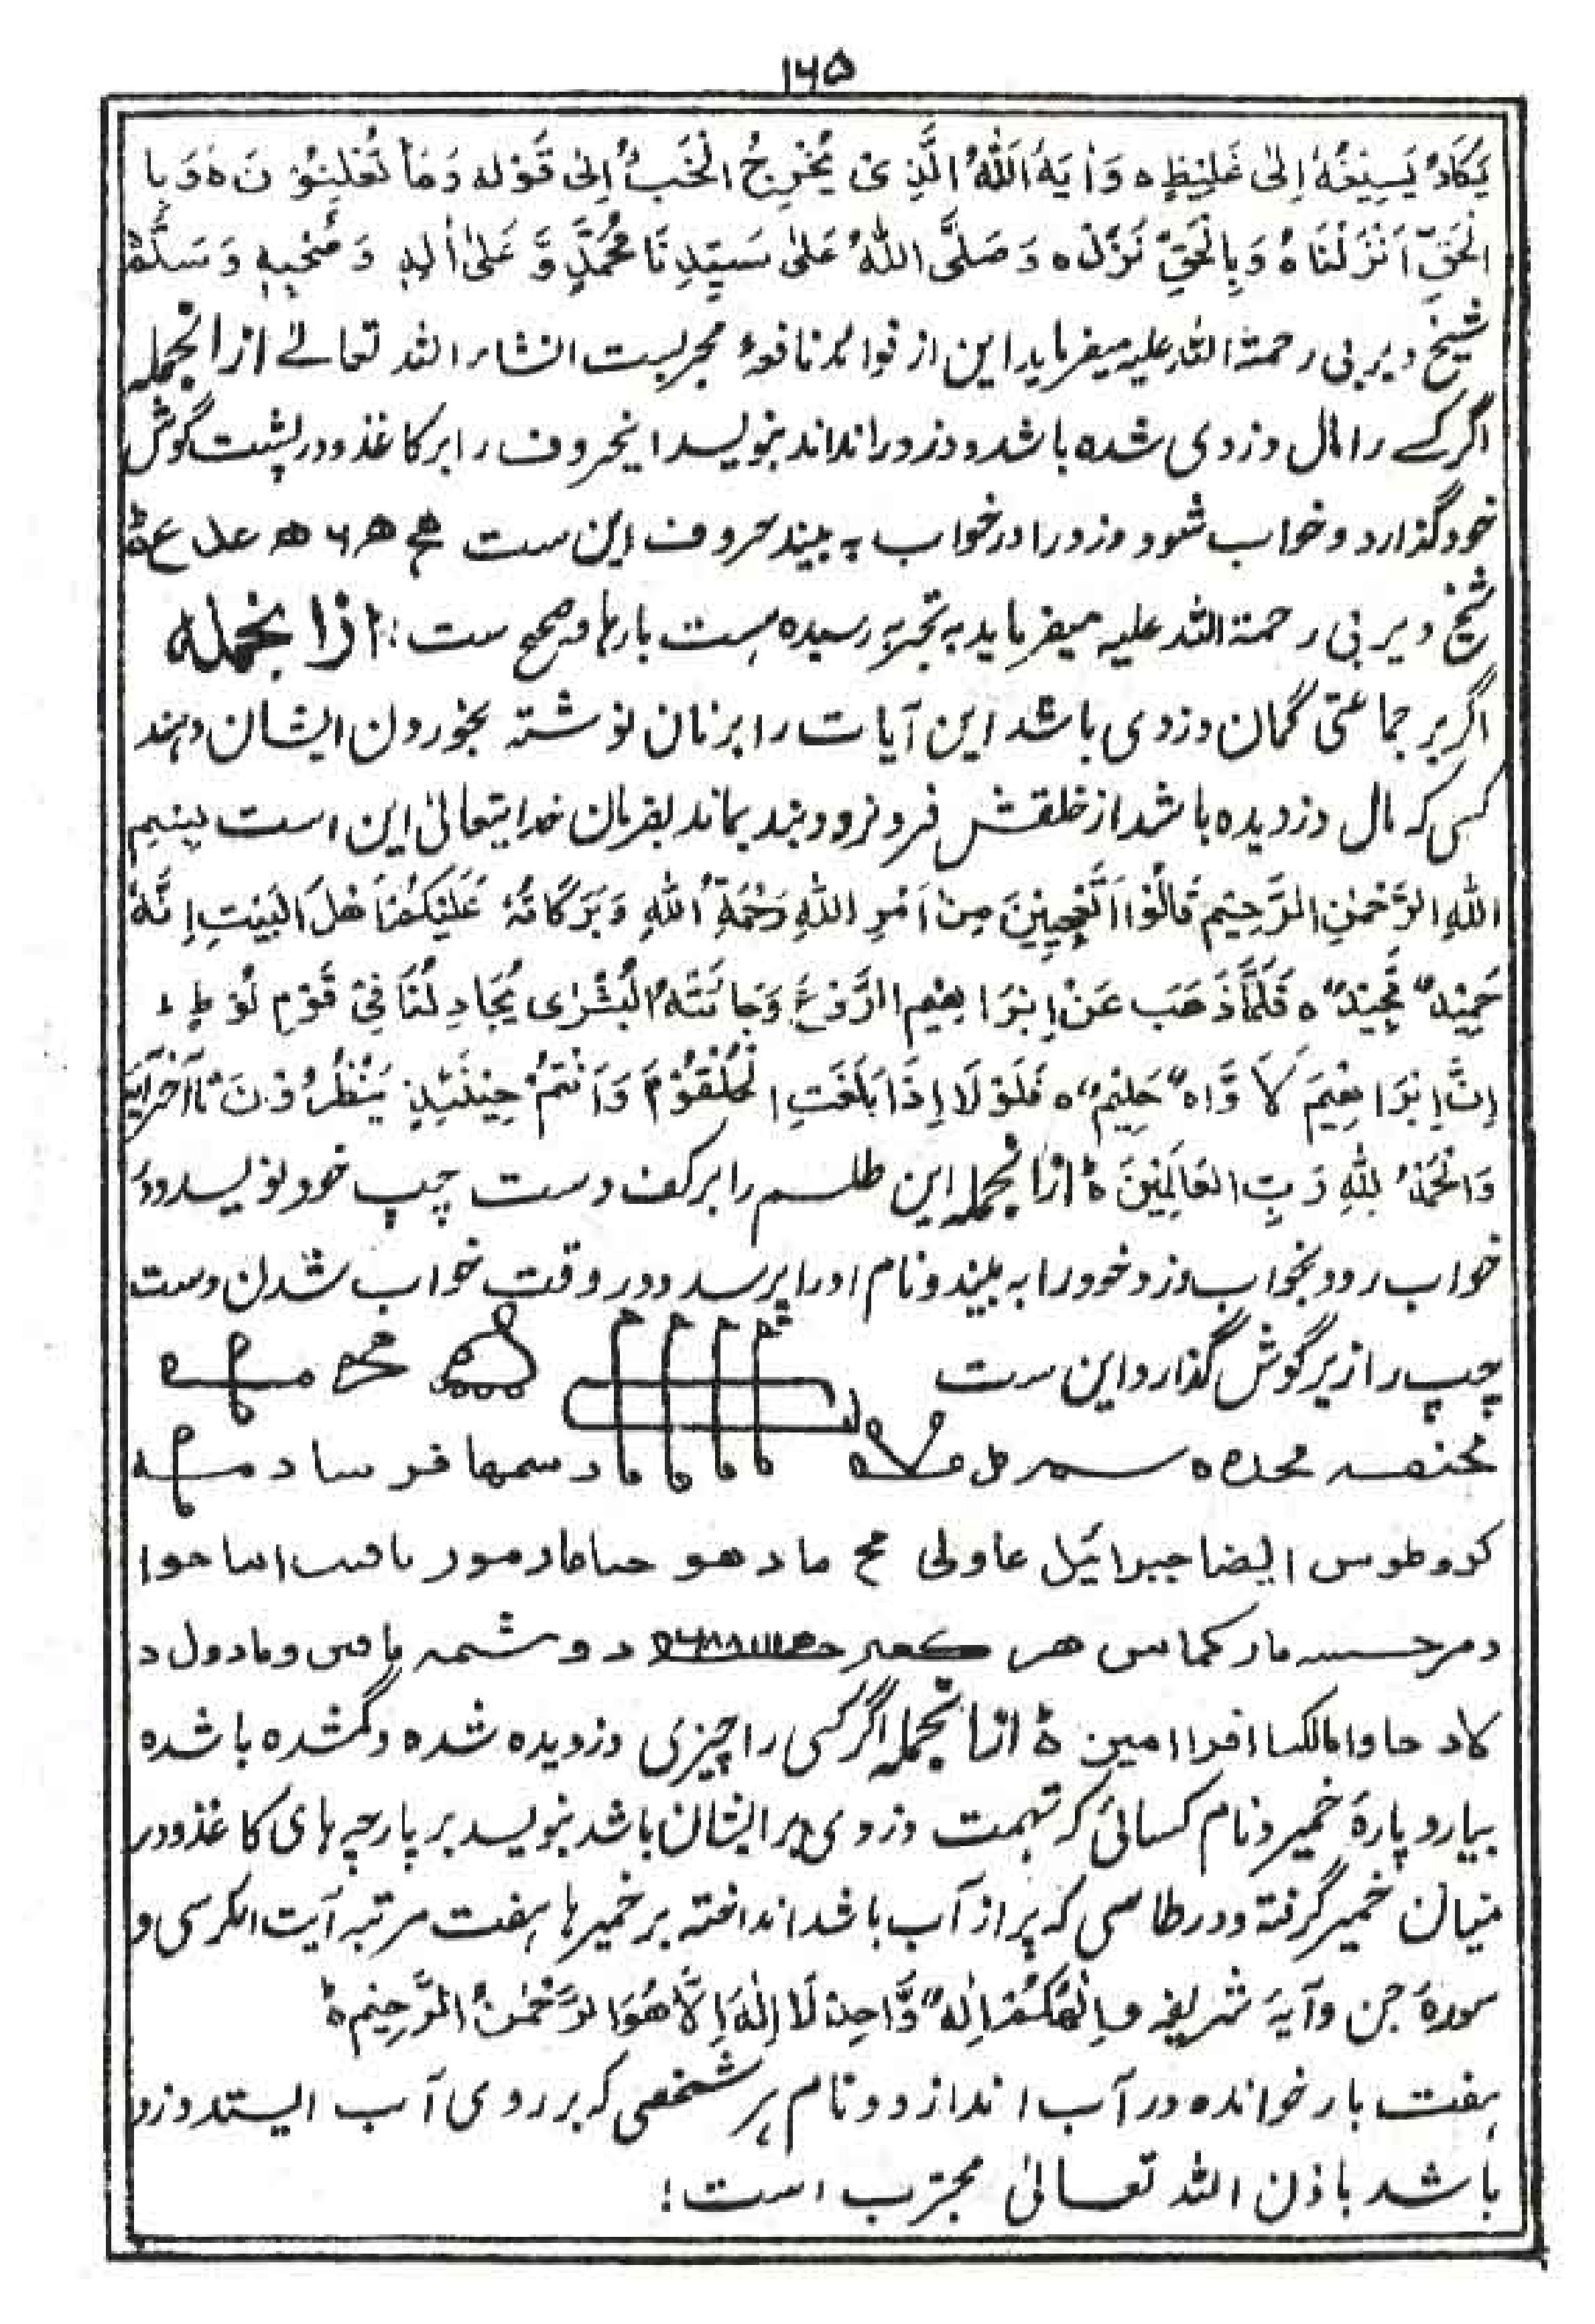 ۱۶۵
يَكَادُ يُسِيغُهُ إِلىٰ غَلِيظٍ ه وَاٰيَهُ اَللّٰهُ الَّذِىْ يُخْرِجُ الْخَبْءَ اِلىٰ قَوْلِهٖ وَمَا تُعْلِنُوْنَ ه وَبِا
الْحَقِّ اَنْزَلْنَاهُ وَبِالْحَقِّ نَزَلَ ه وَصَلَّى اللّٰهُ عَلىٰ سَيِّدِنَا مُحَمَّدٍ وَّ عَلىٰ اٰلِهٖ وَصَحْبِهٖ وَسَلَّمْ
شیخ دیربی رحمة الله علیه میفرماید این از فوائد نافعهٔ مجربست انشاء الله تعالے ازانجمله
اگر کسے را مال دزدی شده باشد و دزد را نداند بنویسد اینحروف را بر کاغذ و در پشت گوش
خود گذارد و خواب شود دزد را در خواب به بیند حروف این ست
شیخ دیربی رحمة الله علیه میفرماید به تجربه رسیده است بارها و صحیح ست : ازانجمله
اگر بر جماعتی گمان دزدی باشد این آیات را بر نان نوشته بخوردن ایشان دهند
کسی که مال دزدیده باشد از حلقش فرو نرود بند بماند بفرمان خدایتعالیٰ این است بِسْمِ
اللهِ الرَّحْمٰنِ الرَّحِيْمِ قَالُوْا اَتَعْجَبِيْنَ مِنْ اَمْرِ اللهِ رَحْمَةُ اللهِ وَبَرَكَاتُهُ عَلَيْكُمْ اَهْلَ الْبَيْتِ اِنَّهُ
حَمِيْدٌ مَّجِيْدٌ ه فَلَمَّا ذَهَبَ عَنْ اِبْرَاهِيْمَ الرَّوْعُ وَجَائَتْهُ الْبُشْرٰى يُجَادِلُنَا فِىْ قَوْمِ لُوْطٍ ،
اِنَّ اِبْرَاهِيْمَ لَاَوَّاهٌ حَلِيْمٌ ه فَلَوْلَا اِذَا بَلَغَتِ الْحُلْقُوْمَ وَاَنْتُمْ حِيْنَئِذٍ تَنْظُرُوْنَ تا آخر آیه
وَالْحَمْدُ لِلّٰهِ رَبِّ الْعَالَمِيْنَ ه ازانجمله این طلسم را بر کف دست چپ خود نویسد و در
خواب رود بخواب دزد خود را به بیند و نام او را پرسد و در وقت خواب شدن دست
چپ را زیر گوش گذارد این ست
در سمها فر سا د
کروطوس ایضا جبرائیل عاولی مح ما د هو
د مر
کاد حاوا مالکسا افرا امین ه ازانجمله اگر کسی را چیزی دزدیده شده و گمشده باشد ه
بیارد پارۀ خمیر و نام کسانیکه تهمت دزدی بر ایشان باشد بنویسد بر پارچه های کاغذ و در
میان خمیر گرفته و در طاسی که پر از آب باشد انداخته بر خمیرها هفت مرتبه آیت الکرسی و
سورۀ جن و آیۀ شریفه وَاِلٰهُكُمْ اِلٰهٌ وَّاحِدٌ لَا اِلٰهَ اِلَّا هُوَ الرَّحْمٰنُ الرَّحِيْمُ ه
هفت بار خوانده در آب اندازد و نام هر شخصی که بر روی آب ایستد دزد
باشد باذن الله تعالیٰ مجرّب است :